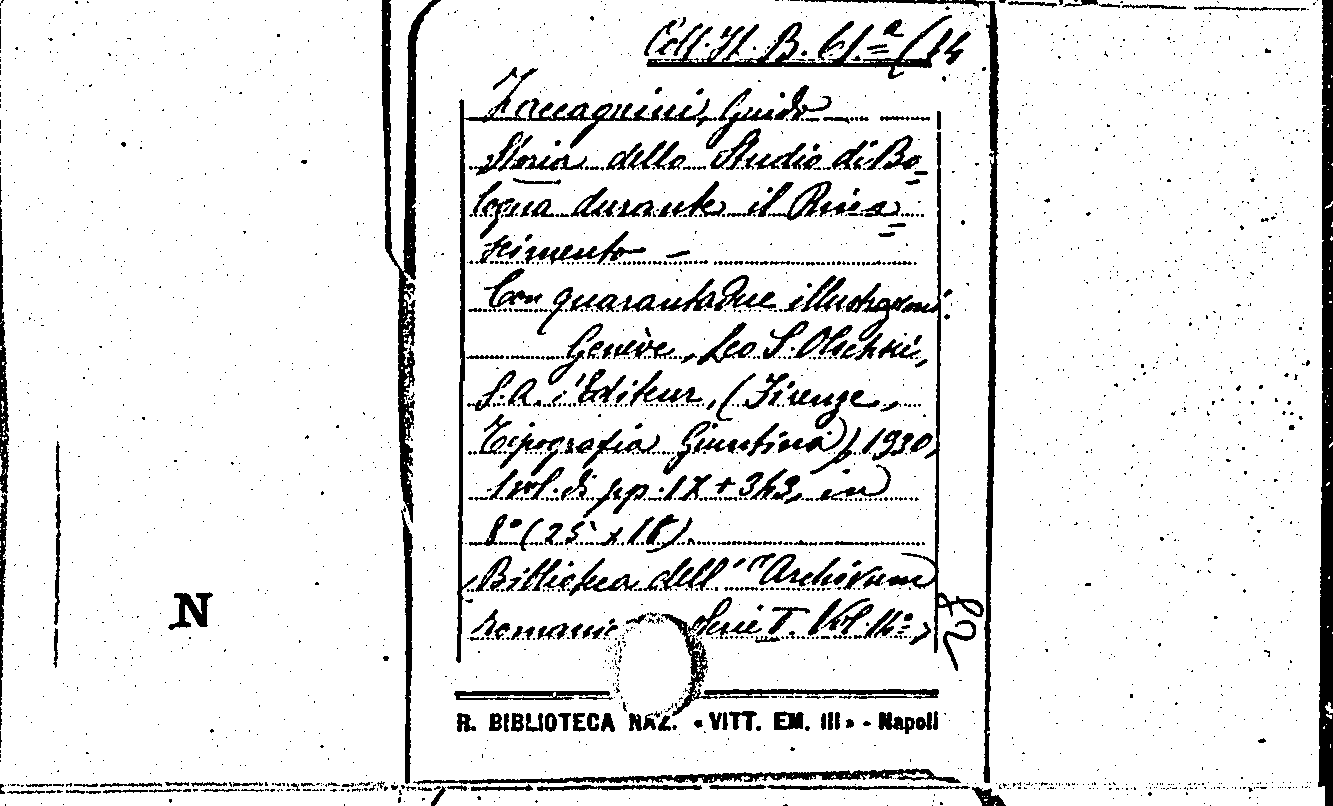 Coll. It. B. 61.ª (14
Zaccagnini, Guido
Storia dello Studio di Bo=
logna durante il Rina=
scimento —
Con quarantadue illustrazioni.
Genève, Leo S. Olschki,
S.A. Editeur, (Firenze,
Tipografia Giuntina), 1930,
1 vol. di pp. IX + 343, in
8° (25 x 18).
Biblioteca dell' "Archivum
romanic Serie I. Vol. 14°,
N
R. BIBLIOTECA NAZ. « VITT. EM. III » - Napoli